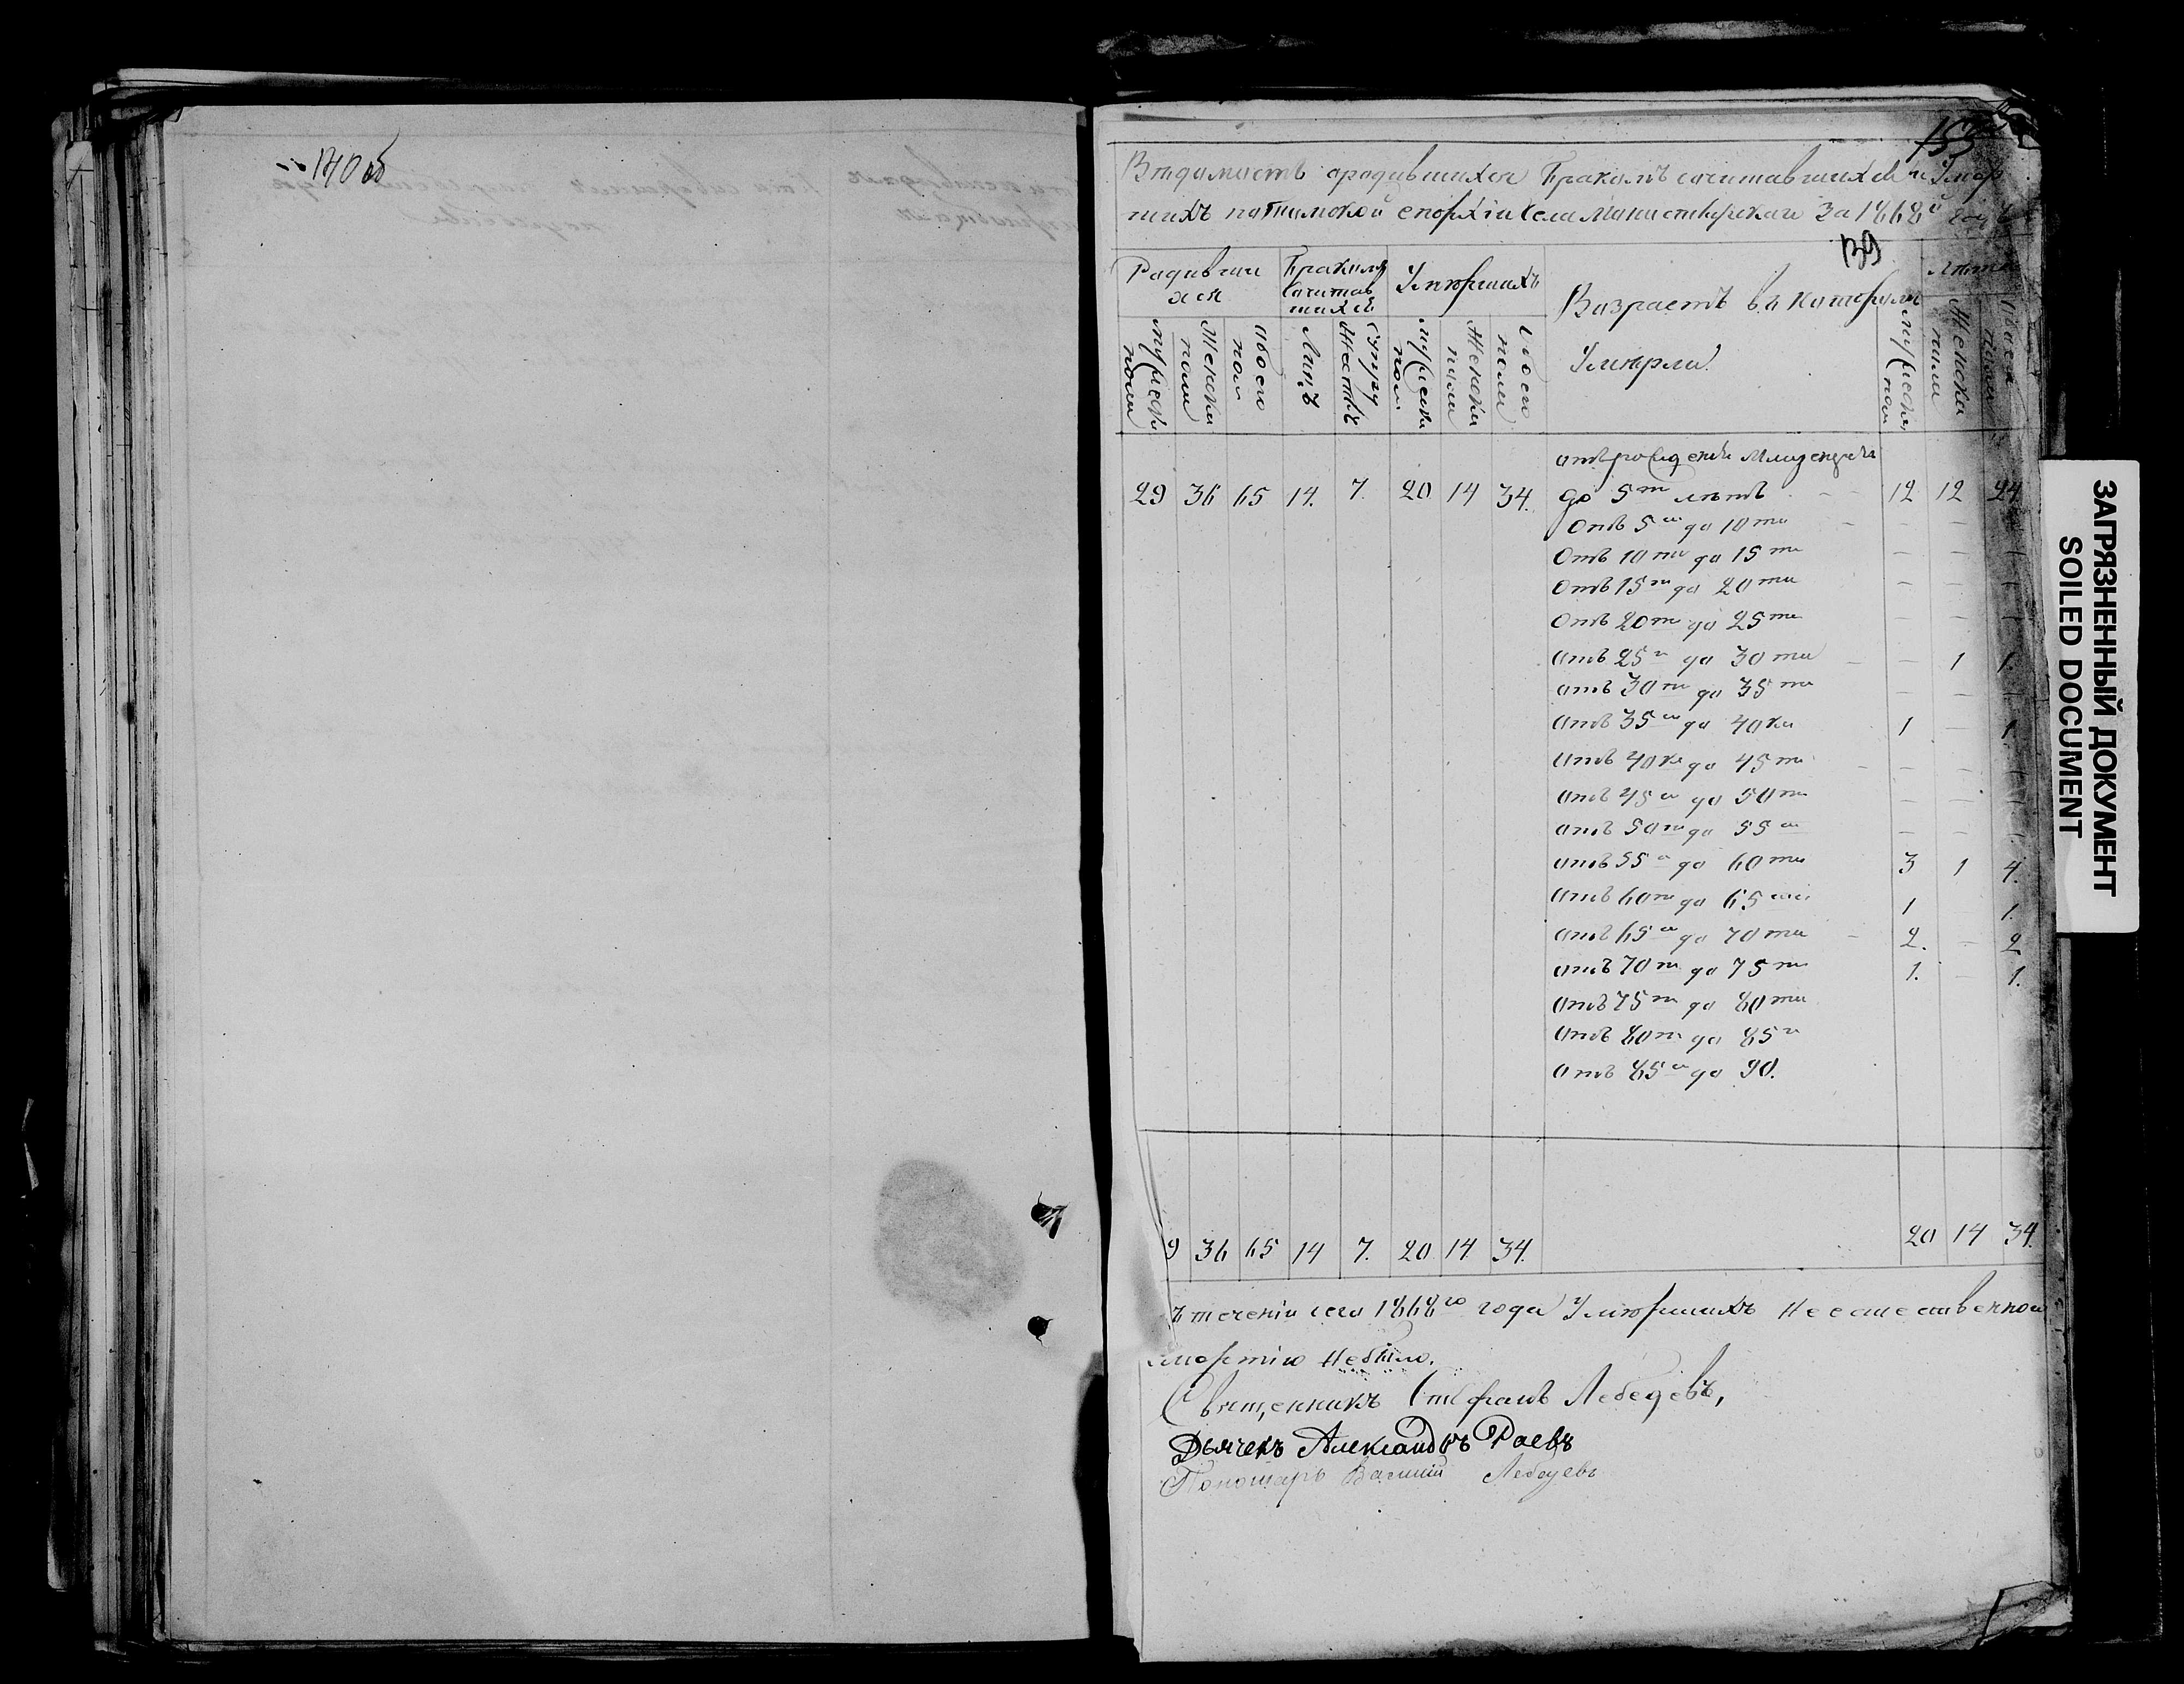 170 об
153
Вѣдомость ородившихся Бракомъ сочитавшихся и Умер
шихъ по Томской епархіи села Монастырскаго За 1868й годъ
139
Родивши
хся
Бракомъ
Сочитав
шихся
Умершихъ
Возрастъ въ котором
Умерли
Лѣта
мужеска
пола
Женска
пола
Обоего
пола
Лицъ
Супру
жествъ
мужеска
пола
Женска
пола
Обоего
пола
мужеска
пола
Женска
пола
Обоего
пола
отъ рожденія Младенцевъ
29 36 65 14. 7. 20 14 34. до 5ти лѣтъ 12 12 24.
Отъ 5ти до 10ти - - -
Отъ 10ти до 15ти - - -
Отъ 15ти до 20ти - - -
Отъ 20ти до 25ти - - -
отъ 25ти до 30ти - 1 1.
отъ 30ти до 35ти - - -
отъ 35ти до 40ка 1 - 1.
отъ 40ка до 45ти - - -
отъ 45ти до 50ти - - -
отъ 50ти до 55ти - - -
отъ 55ти до 60ти 3 1 4.
отъ 60ти до 65ти 1 1.
отъ 65ти до 70ти 2. - 2
отъ 70ти до 75ти 1. - 1.
отъ 75ти до 80ти
отъ 80ти до 85ти
отъ 85ти до 90.
9 36 65 14 7. 20 14 34. 20 14 34.
ъ теченіи сего 1868го года Умершихъ Неестественною
смертію Небыло.
Священникъ Стефанъ Лебедевъ,
Дьячекъ Александръ Раевъ
Пономарь Василий Лебедевъ
ЗАГРЯЗНЕННЫЙ ДОКУМЕНТ
SOILED DOCUMENT